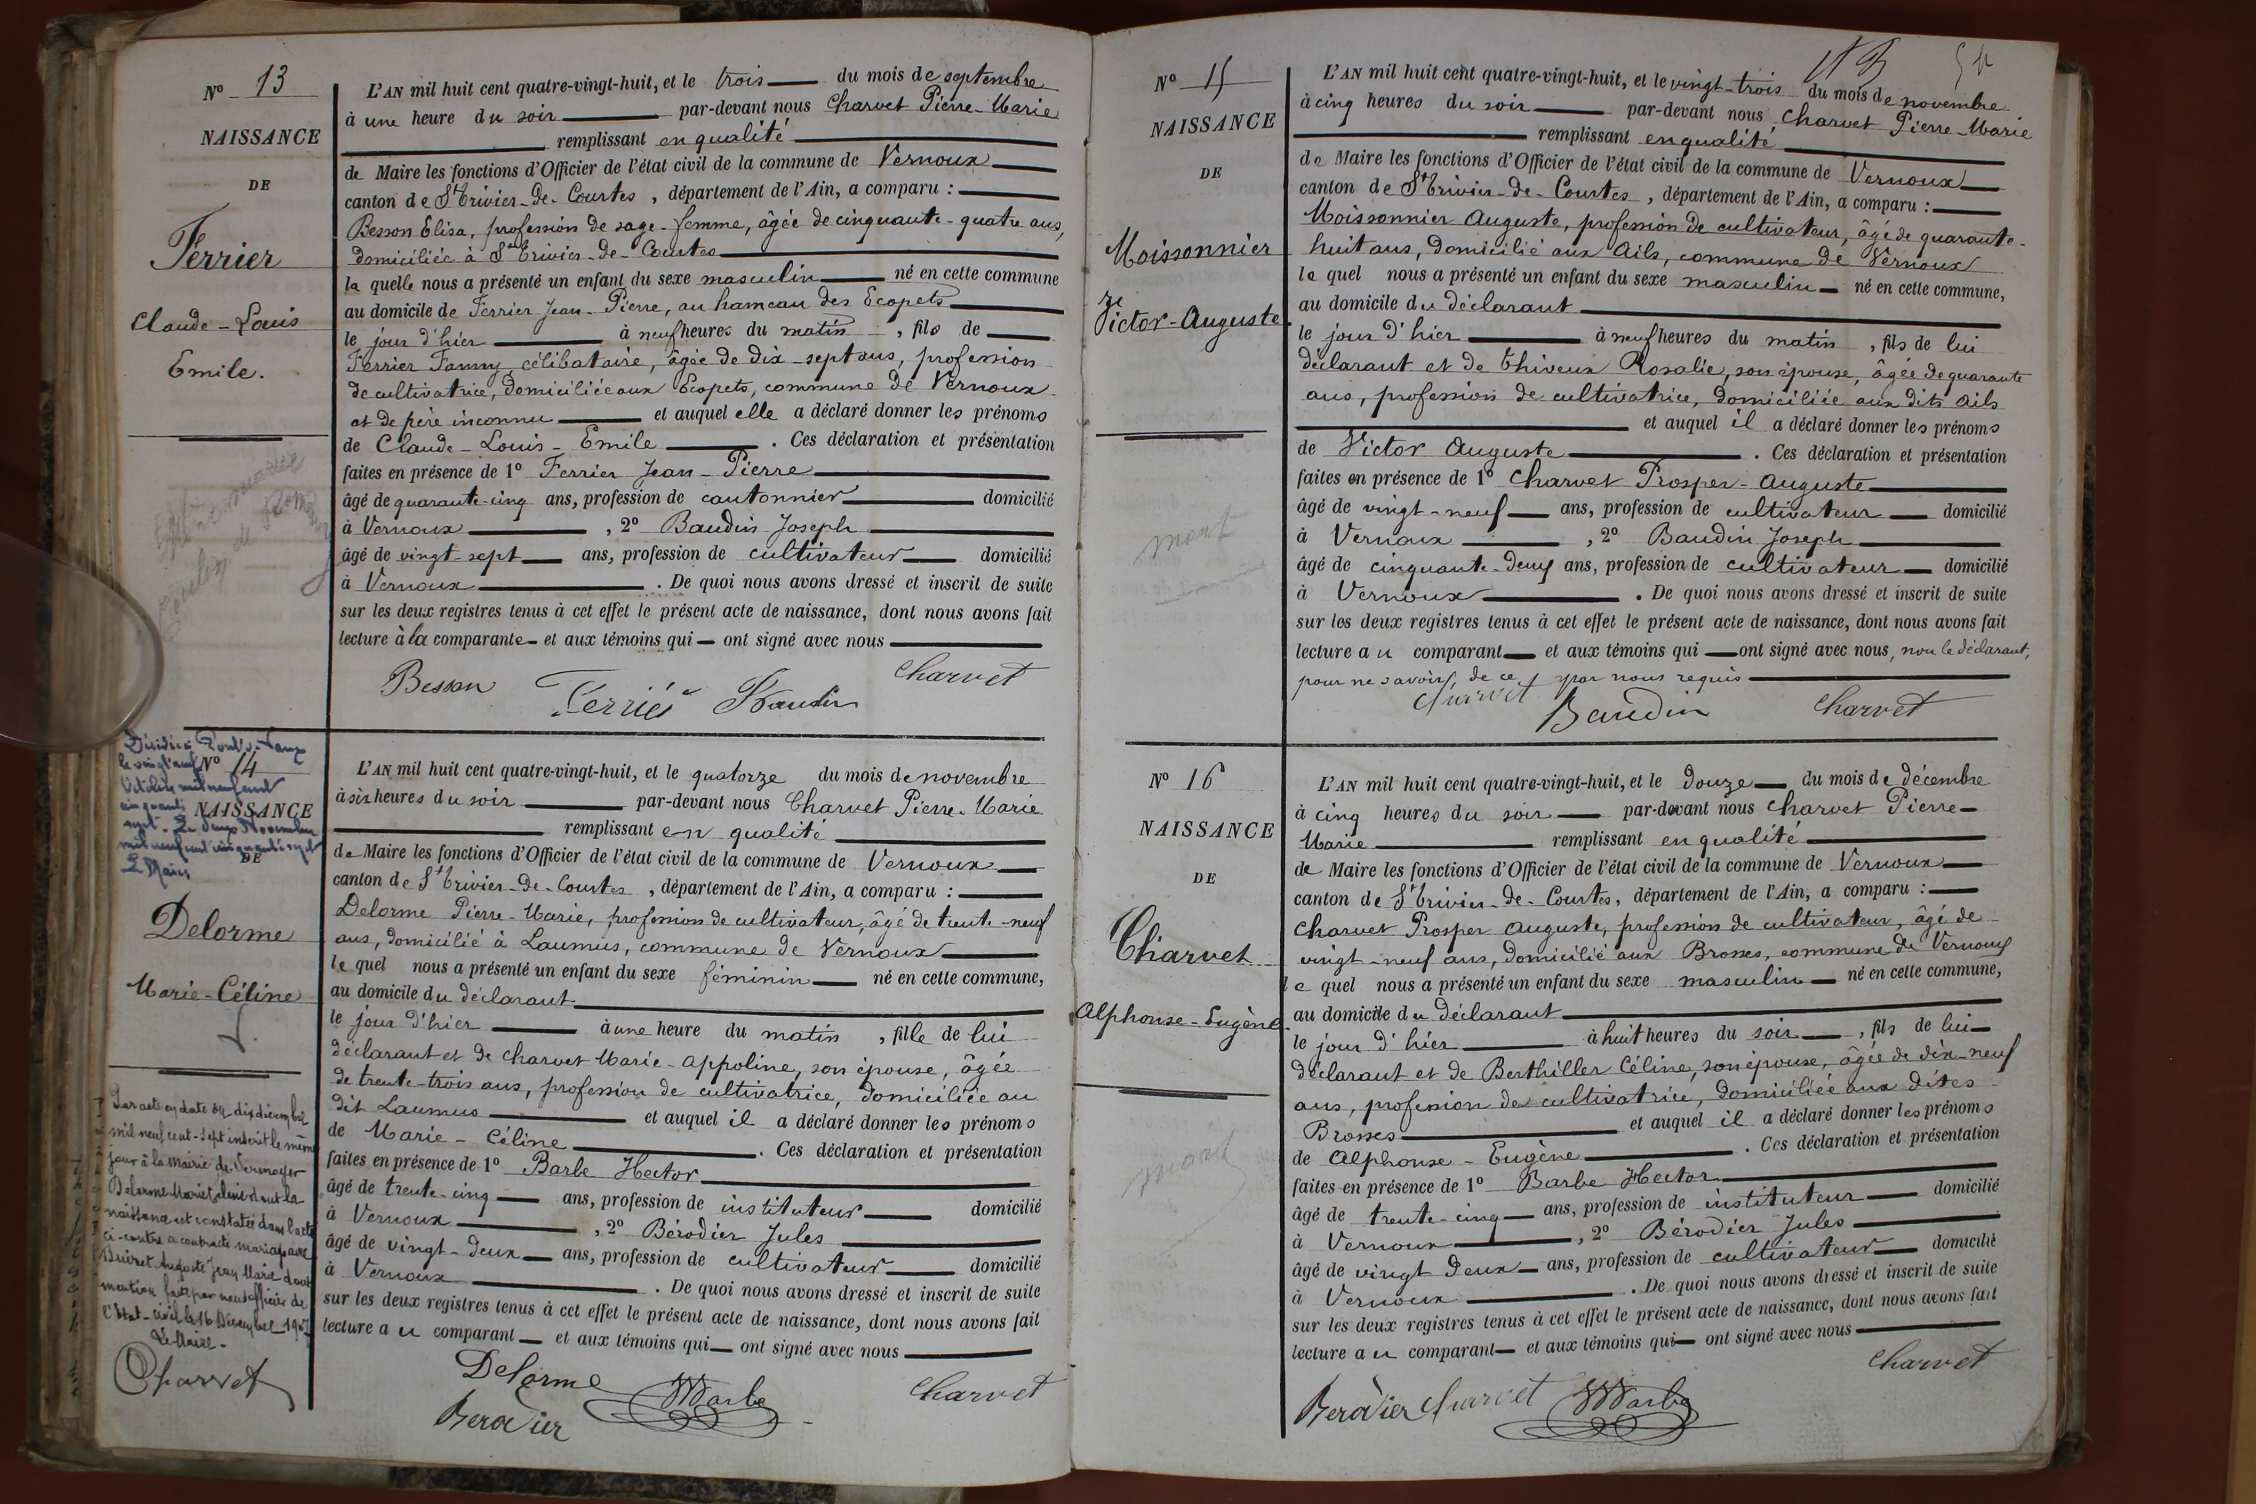 N° 13
NAISSANCE
DE
Ferrier
Claude-Louis
Emile.
L'AN mil huit cent quatre-vingt-huit, et le trois du mois de septembre
à une heure du soir par-devant nous Charvet Pierre-Marie
remplissant en qualité
de Maire les fonctions d'Officier de l'état civil de la commune de Vernoux
canton de St Trivier-de-Courtes, département de l'Ain, a comparu :
Besson Elisa, profession de sage-femme, âgée de cinquante-quatre ans,
domiciliée à St Trivier-de-Courtes
laquelle nous a présenté un enfant du sexe masculin né en cette commune
au domicile de Ferrier Jean-Pierre, au hameau des Ecopets
le jour d'hier à neuf heures du matin, fils de
Ferrier Fanny, célibataire, âgée de dix-sept ans, profession
de cultivatrice, domiciliée aux Ecopets, commune de Vernoux
et de père inconnu et auquel elle a déclaré donner les prénoms
de Claude-Louis-Emile. Ces déclaration et présentation
faites en présence de 1° Ferrier Jean-Pierre
âgé de quarante-cinq ans, profession de cantonnier domicilié
à Vernoux, 2° Baudin Joseph
âgé de vingt-sept ans, profession de cultivateur domicilié
à Vernoux. De quoi nous avons dressé et inscrit de suite
sur les deux registres tenus à cet effet le présent acte de naissance, dont nous avons fait
lecture à la comparante et aux témoins qui ont signé avec nous
Besson Ferrier Baudin Charvet
Décédée à Pont-de-Vaux
le vingt neuf
Octobre mil neuf cent
cinquante
sept. Le deux Novembre
mil neuf cent cinquante sept
Le Maire
N° 14
NAISSANCE
DE
Delorme
Marie-Céline
Par acte en date du dix décembre
mil neuf cent-sept inscrit le même
jour à la Mairie de Sermoyer
Delorme Marie Céline dont la
naissance est constatée dans l'acte
ci-contre a contracté mariage avec
Auguste Jean Marie dont
mention faite par nous officier de
l'Etat-civil le 16 Décembre 1907
Le Maire
Charvet
L'AN mil huit cent quatre-vingt-huit, et le quatorze du mois de novembre
à six heures du soir par-devant nous Charvet Pierre-Marie
remplissant en qualité
de Maire les fonctions d'Officier de l'état civil de la commune de Vernoux
canton de St Trivier-de-Courtes, département de l'Ain, a comparu :
Delorme Pierre-Marie, profession de cultivateur, âgé de trente-neuf
ans, domicilié à Laumus, commune de Vernoux
lequel nous a présenté un enfant du sexe féminin né en cette commune,
au domicile du déclarant
le jour d'hier à une heure du matin, fille de lui
déclarant et de Charvet Marie-Appoline, son épouse, âgée
de trente-trois ans, profession de cultivatrice, domiciliée au
dit Laumus et auquel il a déclaré donner les prénoms
de Marie-Céline. Ces déclaration et présentation
faites en présence de 1° Barbe Hector
âgé de trente-cinq ans, profession de instituteur domicilié
à Vernoux, 2° Bérodier Jules
âgé de vingt-deux ans, profession de cultivateur domicilié
à Vernoux. De quoi nous avons dressé et inscrit de suite
sur les deux registres tenus à cet effet le présent acte de naissance, dont nous avons fait
lecture au comparant et aux témoins qui ont signé avec nous
Delorme Barbe Charvet
Berodier
N° 15
NAISSANCE
DE
Moissonnier
Victor-Auguste
mort
L'AN mil huit cent quatre-vingt-huit, et le vingt-trois du mois de novembre
à cinq heures du soir par-devant nous Charvet Pierre-Marie
remplissant en qualité
de Maire les fonctions d'Officier de l'état civil de la commune de Vernoux
canton de St Trivier-de-Courtes, département de l'Ain, a comparu :
Moissonnier Auguste, profession de cultivateur, âgé de quarante-
huit ans, domicilié aux Ails, commune de Vernoux
lequel nous a présenté un enfant du sexe masculin né en cette commune,
au domicile du déclarant
le jour d'hier à neuf heures du matin, fils de lui
déclarant et de Thiveux Rosalie, son épouse, âgée de quarante
ans, profession de cultivatrice, domiciliée aux dits Ails
et auquel il a déclaré donner les prénoms
de Victor Auguste. Ces déclaration et présentation
faites en présence de 1° Charvet Prosper-Auguste
âgé de vingt-neuf ans, profession de cultivateur domicilié
à Vernoux, 2° Baudin Joseph
âgé de cinquante-deux ans, profession de cultivateur domicilié
à Vernoux. De quoi nous avons dressé et inscrit de suite
sur les deux registres tenus à cet effet le présent acte de naissance, dont nous avons fait
lecture au comparant et aux témoins qui ont signé avec nous, non le déclarant,
pour ne savoir, de ce par nous requis
Charvet Baudin Charvet
N° 16
NAISSANCE
DE
Charvet
Alphonse-Eugène
mort
L'AN mil huit cent quatre-vingt-huit, et le douze du mois de décembre
à cinq heures du soir par-devant nous Charvet Pierre-
Marie remplissant en qualité
de Maire les fonctions d'Officier de l'état civil de la commune de Vernoux
canton de St Trivier-de-Courtes, département de l'Ain, a comparu :
Charvet Prosper Auguste, profession de cultivateur, âgé de
vingt-neuf ans, domicilié aux Brosses, commune de Vernoux
lequel nous a présenté un enfant du sexe masculin né en cette commune,
au domicile du déclarant
le jour d'hier à huit heures du soir, fils de lui
déclarant et de Berthiller Céline, son épouse, âgée de dix-neuf
ans, profession de cultivatrice, domiciliée aux dites
Brosses et auquel il a déclaré donner les prénoms
de Alphonse-Eugène. Ces déclaration et présentation
faites en présence de 1° Barbe Hector
âgé de trente-cinq ans, profession de instituteur domicilié
à Vernoux, 2° Bérodier Jules
âgé de vingt deux ans, profession de cultivateur domicilié
à Vernoux. De quoi nous avons dressé et inscrit de suite
sur les deux registres tenus à cet effet le présent acte de naissance, dont nous avons fait
lecture au comparant et aux témoins qui ont signé avec nous
Berodier Charvet Barbe Charvet